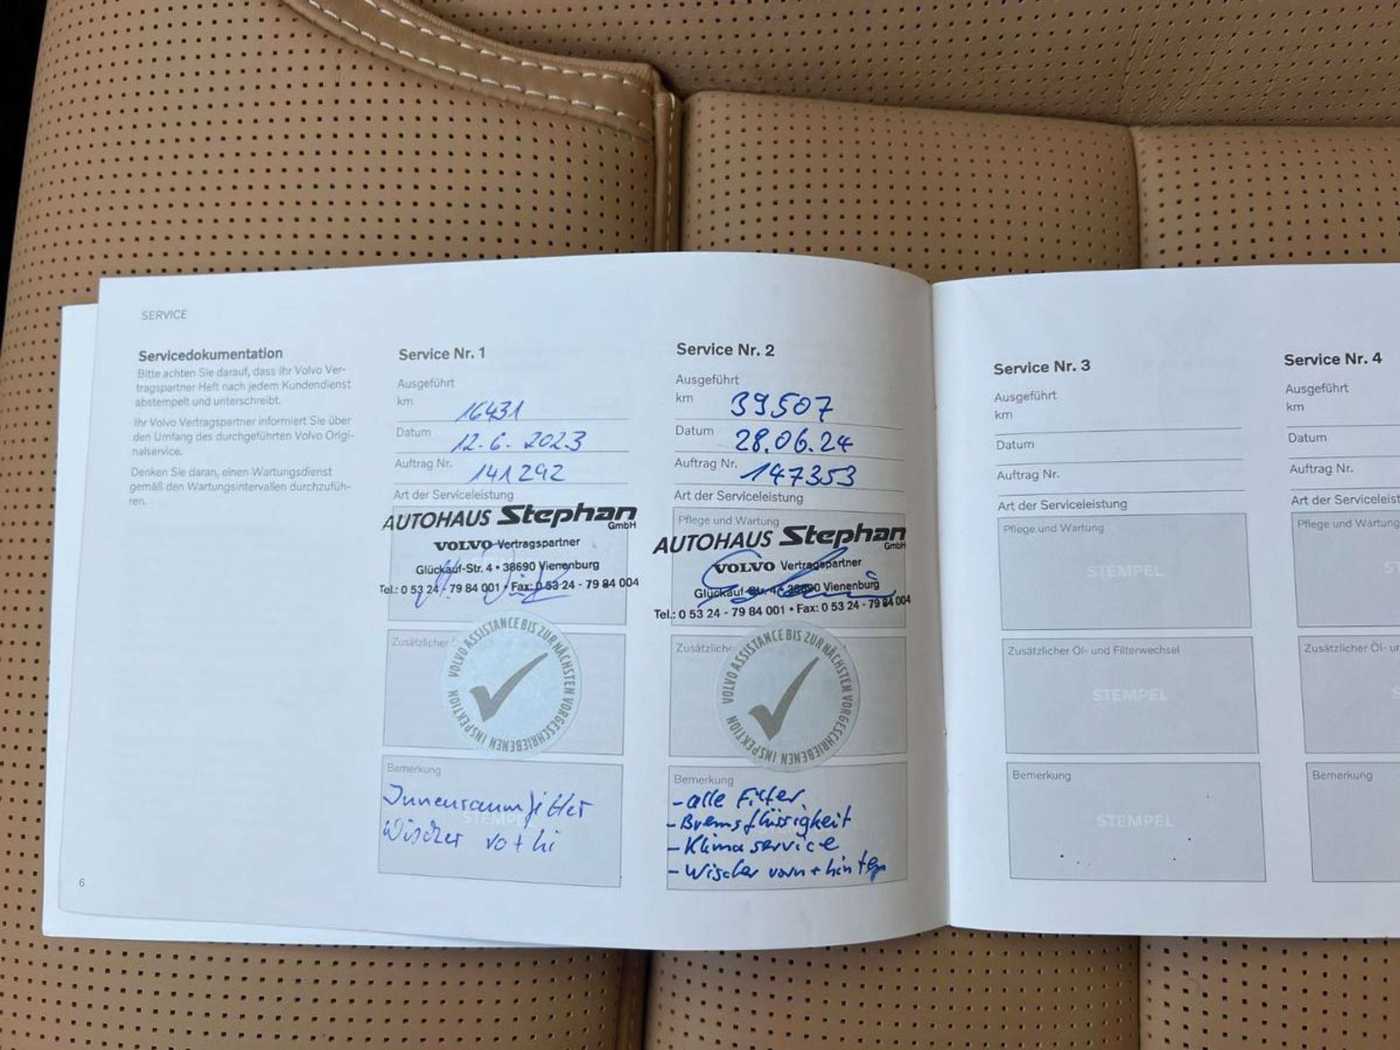 SERVICE
Servicedokumentation
Bitte achten Sie darauf, dass Ihr Volvo Ver-
tragspartner Heft nach jedem Kundendienst
abstempelt und unterschreibt.
Ihr Volvo Vertragspartner informiert Sie über
den Umfang des durchgeführten Volvo Origi-
nalservice.
Denken Sie daran, einen Wartungsdienst
gemäß den Wartungsintervallen durchzufüh-
ren.
6
Service Nr. 1
Ausgeführt
km 16431
Datum 12.6.2023
Auftrag Nr. 141292
Art der Serviceleistung
AUTOHAUS Stephan
GmbH
VOLVO Vertragspartner
Glückauf-Str. 4 • 38690 Vienenburg
Tel.: 0 53 24 - 79 84 001 • Fax: 0 53 24 - 79 84 004
Zusätzlicher
VOLVO ASSISTANCE BIS ZUR NÄCHSTEN VORGESCHRIEBENEN INSPEKTION
Bemerkung
STEMPEL
Innenraumfilter
Wischer vo + hi
Service Nr. 2
Ausgeführt
km 39507
Datum 28.06.24
Auftrag Nr. 147353
Art der Serviceleistung
Pflege und Wartung
AUTOHAUS Stephan
GmbH
VOLVO Vertragspartner
Glückauf-Str. 4 • 38690 Vienenburg
Tel.: 0 53 24 - 79 84 001 • Fax: 0 53 24 - 79 84 004
Zusätzlich
VOLVO ASSISTANCE BIS ZUR NÄCHSTEN VORGESCHRIEBENEN INSPEKTION
Bemerkung
- alle Filter
- Bremsflüssigkeit
- Klimaservice
- Wischer vorn + hinten
Service Nr. 3
Ausgeführt
km
Datum
Auftrag Nr.
Art der Serviceleistung
Pflege und Wartung
STEMPEL
Zusätzlicher Öl- und Filterwechsel
STEMPEL
Bemerkung
STEMPEL
Service Nr. 4
Ausgeführt
km
Datum
Auftrag Nr.
Art der Serviceleist
Pflege und Wartun
ST
Zusätzlicher Öl- u
Bemerkung